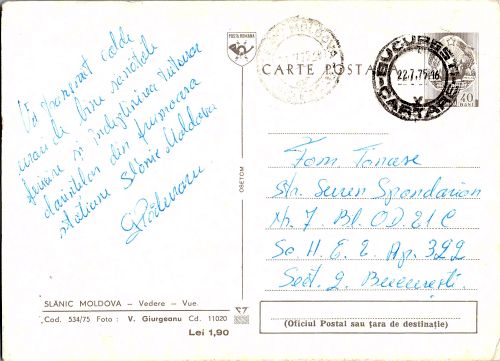 Vă transmit calde
urări de bine sănătate
fericire și îndeplinirea tuturor
dorințelor din frumoasa
stațiune Slănic Moldova
POSTA ROMANA
CARTE POSTALĂ
BUCUREȘTI
22.7.75.16
CARTARE
40
BANI
OSETOM
Fam Tonase
Str. Suren Spandarian
Nr. 7 Bl. OD. 21 C
Sc H. E. 2 Ap. 322
Sect. 2. București
SLĂNIC MOLDOVA — Vedere — Vue
Cod. 534/75 Foto : V. Giurgeanu Cd. 11020
Lei 1,90
(Oficiul Postal sau țara de destinație)